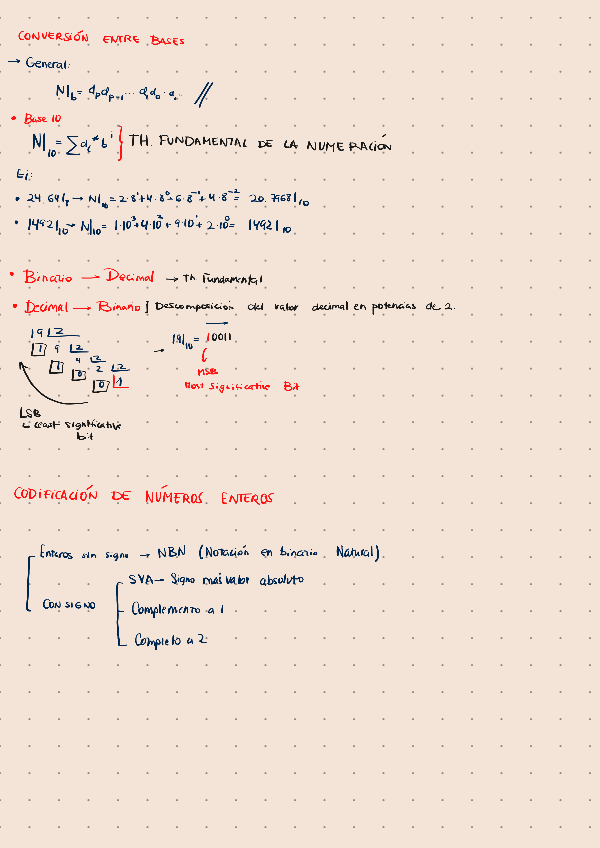 CONVERSIÓN ENTRE BASES
→ General:
N|b = dp dp-1 ... d1 d0 .
• Base 10
N|10 = ∑ di * b^i } TH. FUNDAMENTAL DE LA NUMERACIÓN
Ej:
• 24.64|8 → N|10 = 2·8^1+4·8^0+6·8^-1+4·8^-2 = 20.7968|10
• 1492|10 → N|10 = 1·10^3+4·10^2+9·10^1+2·10^0 = 1492|10
• Binario → Decimal → Th Fundamental
• Decimal → Binario | Descomposición del valor decimal en potencias de 2.
19 |2
1 9 |2
1 4 |2
0 2 |2
0 1
→ 19|10 = 10011
MSB
Most Significative Bit
LSB
Least significative
bit
CODIFICACIÓN DE NÚMEROS ENTEROS
Enteros sin signo → NBN (Notación en binario Natural).
CON SIGNO
SVA → Signo más valor absoluto
Complemento a 1
Completo a 2